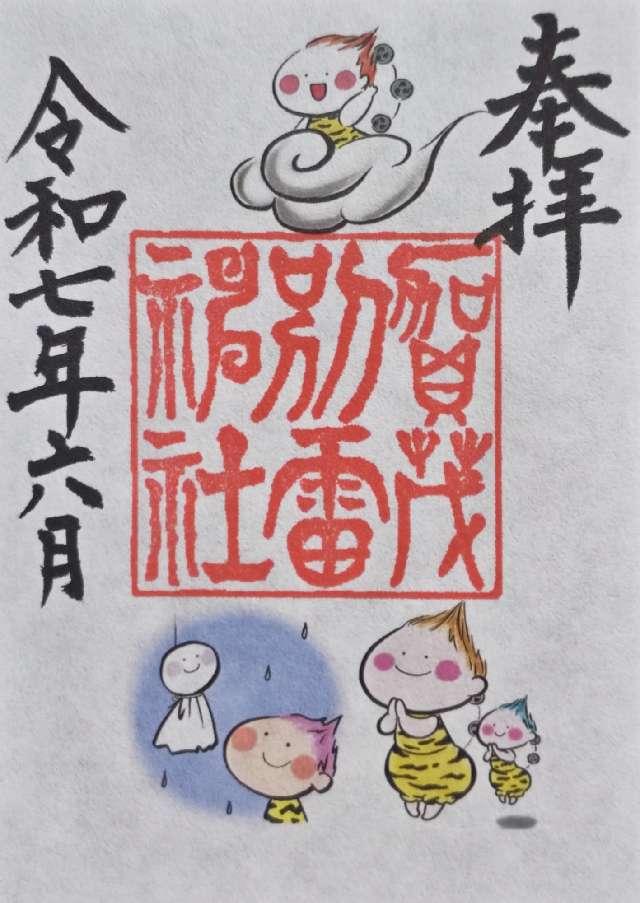 奉拝
賀茂
別雷
神社
令和七年六月